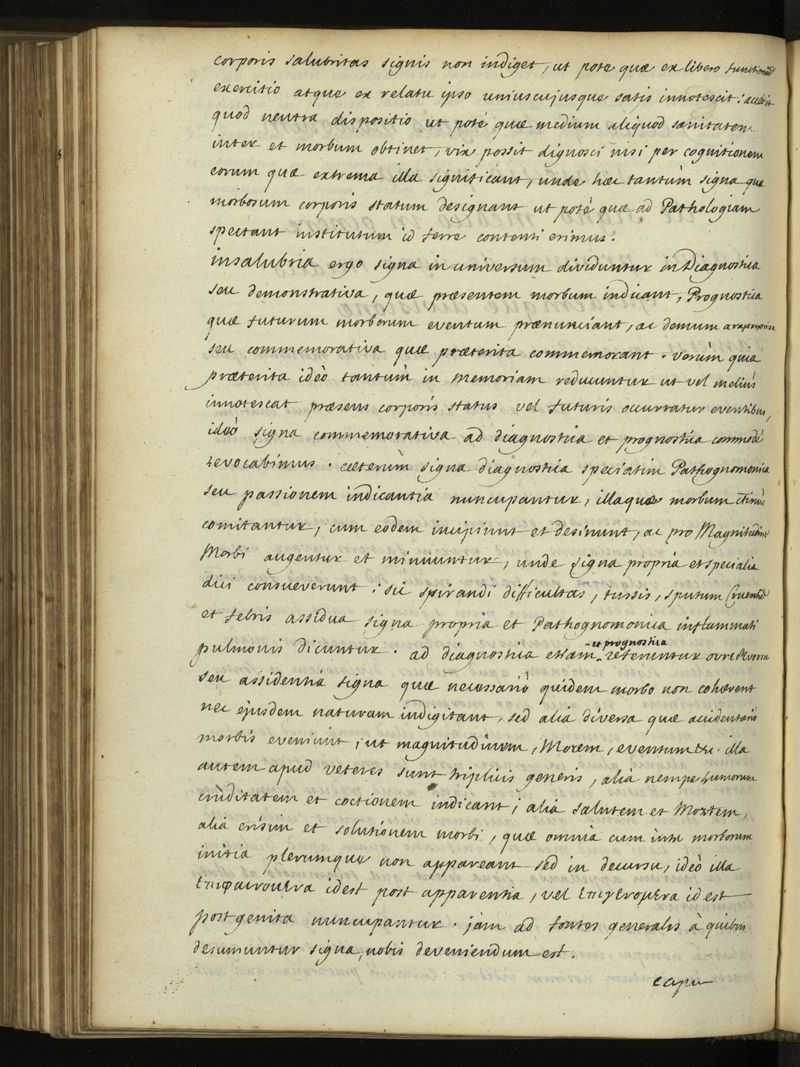 corporis salubritas signis non indiget, ut pote quæ ex libero functionũ
exercitio atque ex relatu ipso uniuscujusque satis innotescit: accedit
quod neutra dispositio ut poté quæ medium aliquod sanitatem
inter et morbum obtinet, vix possit dignosci nisi per cognitionem
eorum quæ extrema illa significant, unde hæc tantùm signa quæ
morbosum corporis statum designant ut poté quæ ad Pathologiam
spectant institutum id ferre contenti erimus.
insalubria ergo signa in universum dividuntur in Diagnostica
seu demonstrativa, quæ præsentem morbum indicant, Prognostica
quæ futurum morborum eventum prænunciant, ac demum
seu commemorativa quæ præterita commemorant. verùm quia
præterita ideò tantùm in Memoriam reducuntur ut vel meliùs
innotescat præsens corporis status vel futuris occurratur eventibus,
ideò signa commemorativa ad diagnostica et prognostica commodè
revocabimus. cæterùm signa diagnostica speciatim Pathognomonica
seu passionem indicantia nuncupantur, illaque morbum
comitantur, cum eodem incipiunt et desinunt, ac pro Magnitudine
Morbi augentur et minuuntur, unde signa propria et specialia
dici consueverunt: sic spirandi difficultas, tussis, sputum cruentũ
et febris assidua signa propria et Pathognomonica inflammati
pulmonis dicuntur. ad diagnostica etiam et prognostica referuntur
seu assidentia signa quæ necessariò quidem morbo non cohærent
nec ejusdem naturam indigitant, sed alia diversa quæ accidentariò
morbis eveniunt, ut magnitudinem, Morem, eventum &c. illa
autem apud veteres sunt triplicis generis, alia nempe humorum
cruditatem et coctionem indicant, alia salutem et Mortem,
alia crisim et solutionem morbi, quæ omnia cum inter morborum
initia plerumque non appareant sed in decursu, ideò illa
επιφαινομενα idest post apparentia, vel επιγενομενα id est
post genita nuncupantur. jam ad fontes generales à quibus
desumuntur signa, nobis deveniendum est.
capu